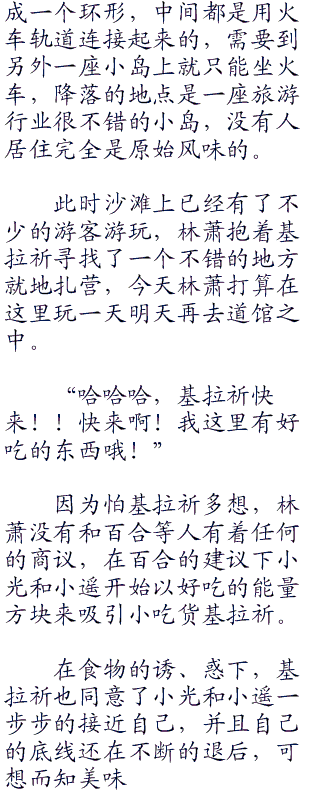 成一个环形，中间都是用火
车轨道连接起来的，需要到
另外一座小岛上就只能坐火
车，降落的地点是一座旅游
行业很不错的小岛，没有人
居住完全是原始风味的。
此时沙滩上已经有了不
少的游客游玩，林萧抱着基
拉祈寻找了一个不错的地方
就地扎营，今天林萧打算在
这里玩一天明天再去道馆之
中。
“哈哈哈，基拉祈快
来！！快来啊！我这里有好
吃的东西哦！”
因为怕基拉祈多想，林
萧没有和百合等人有着任何
的商议，在百合的建议下小
光和小遥开始以好吃的能量
方块来吸引小吃货基拉祈。
在食物的诱、惑下，基
拉祈也同意了小光和小遥一
步步的接近自己，并且自己
的底线还在不断的退后，可
想而知美味